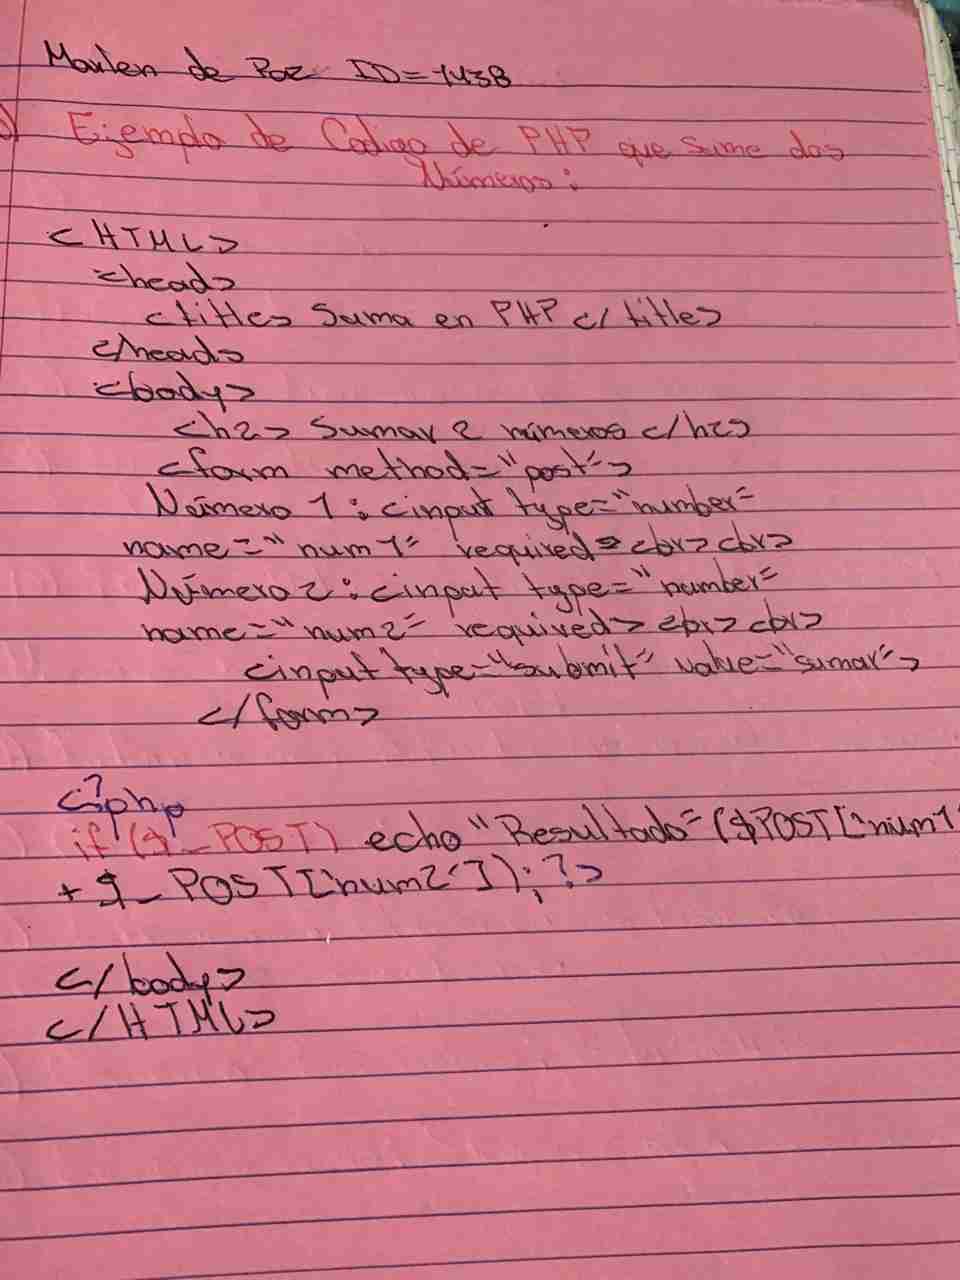 Marlen de Paz ID=1438
Ejemplo de Codigo de PHP que sume dos
Números:
<HTML>
<head>
<title> Suma en PHP </title>
</head>
<body>
<h2> Sumar 2 números </h2>
<form method="post">
Número 1: <input type="number"
name="num1" required> <br> <br>
Número 2: <input type="number"
name="num2" required> <br> <br>
<input type="submit" value="sumar">
</form>
<?php
if ($_POST) echo "Resultado" ($POST['num1
+ $_POST['num2']); ?>
</body>
</HTML>